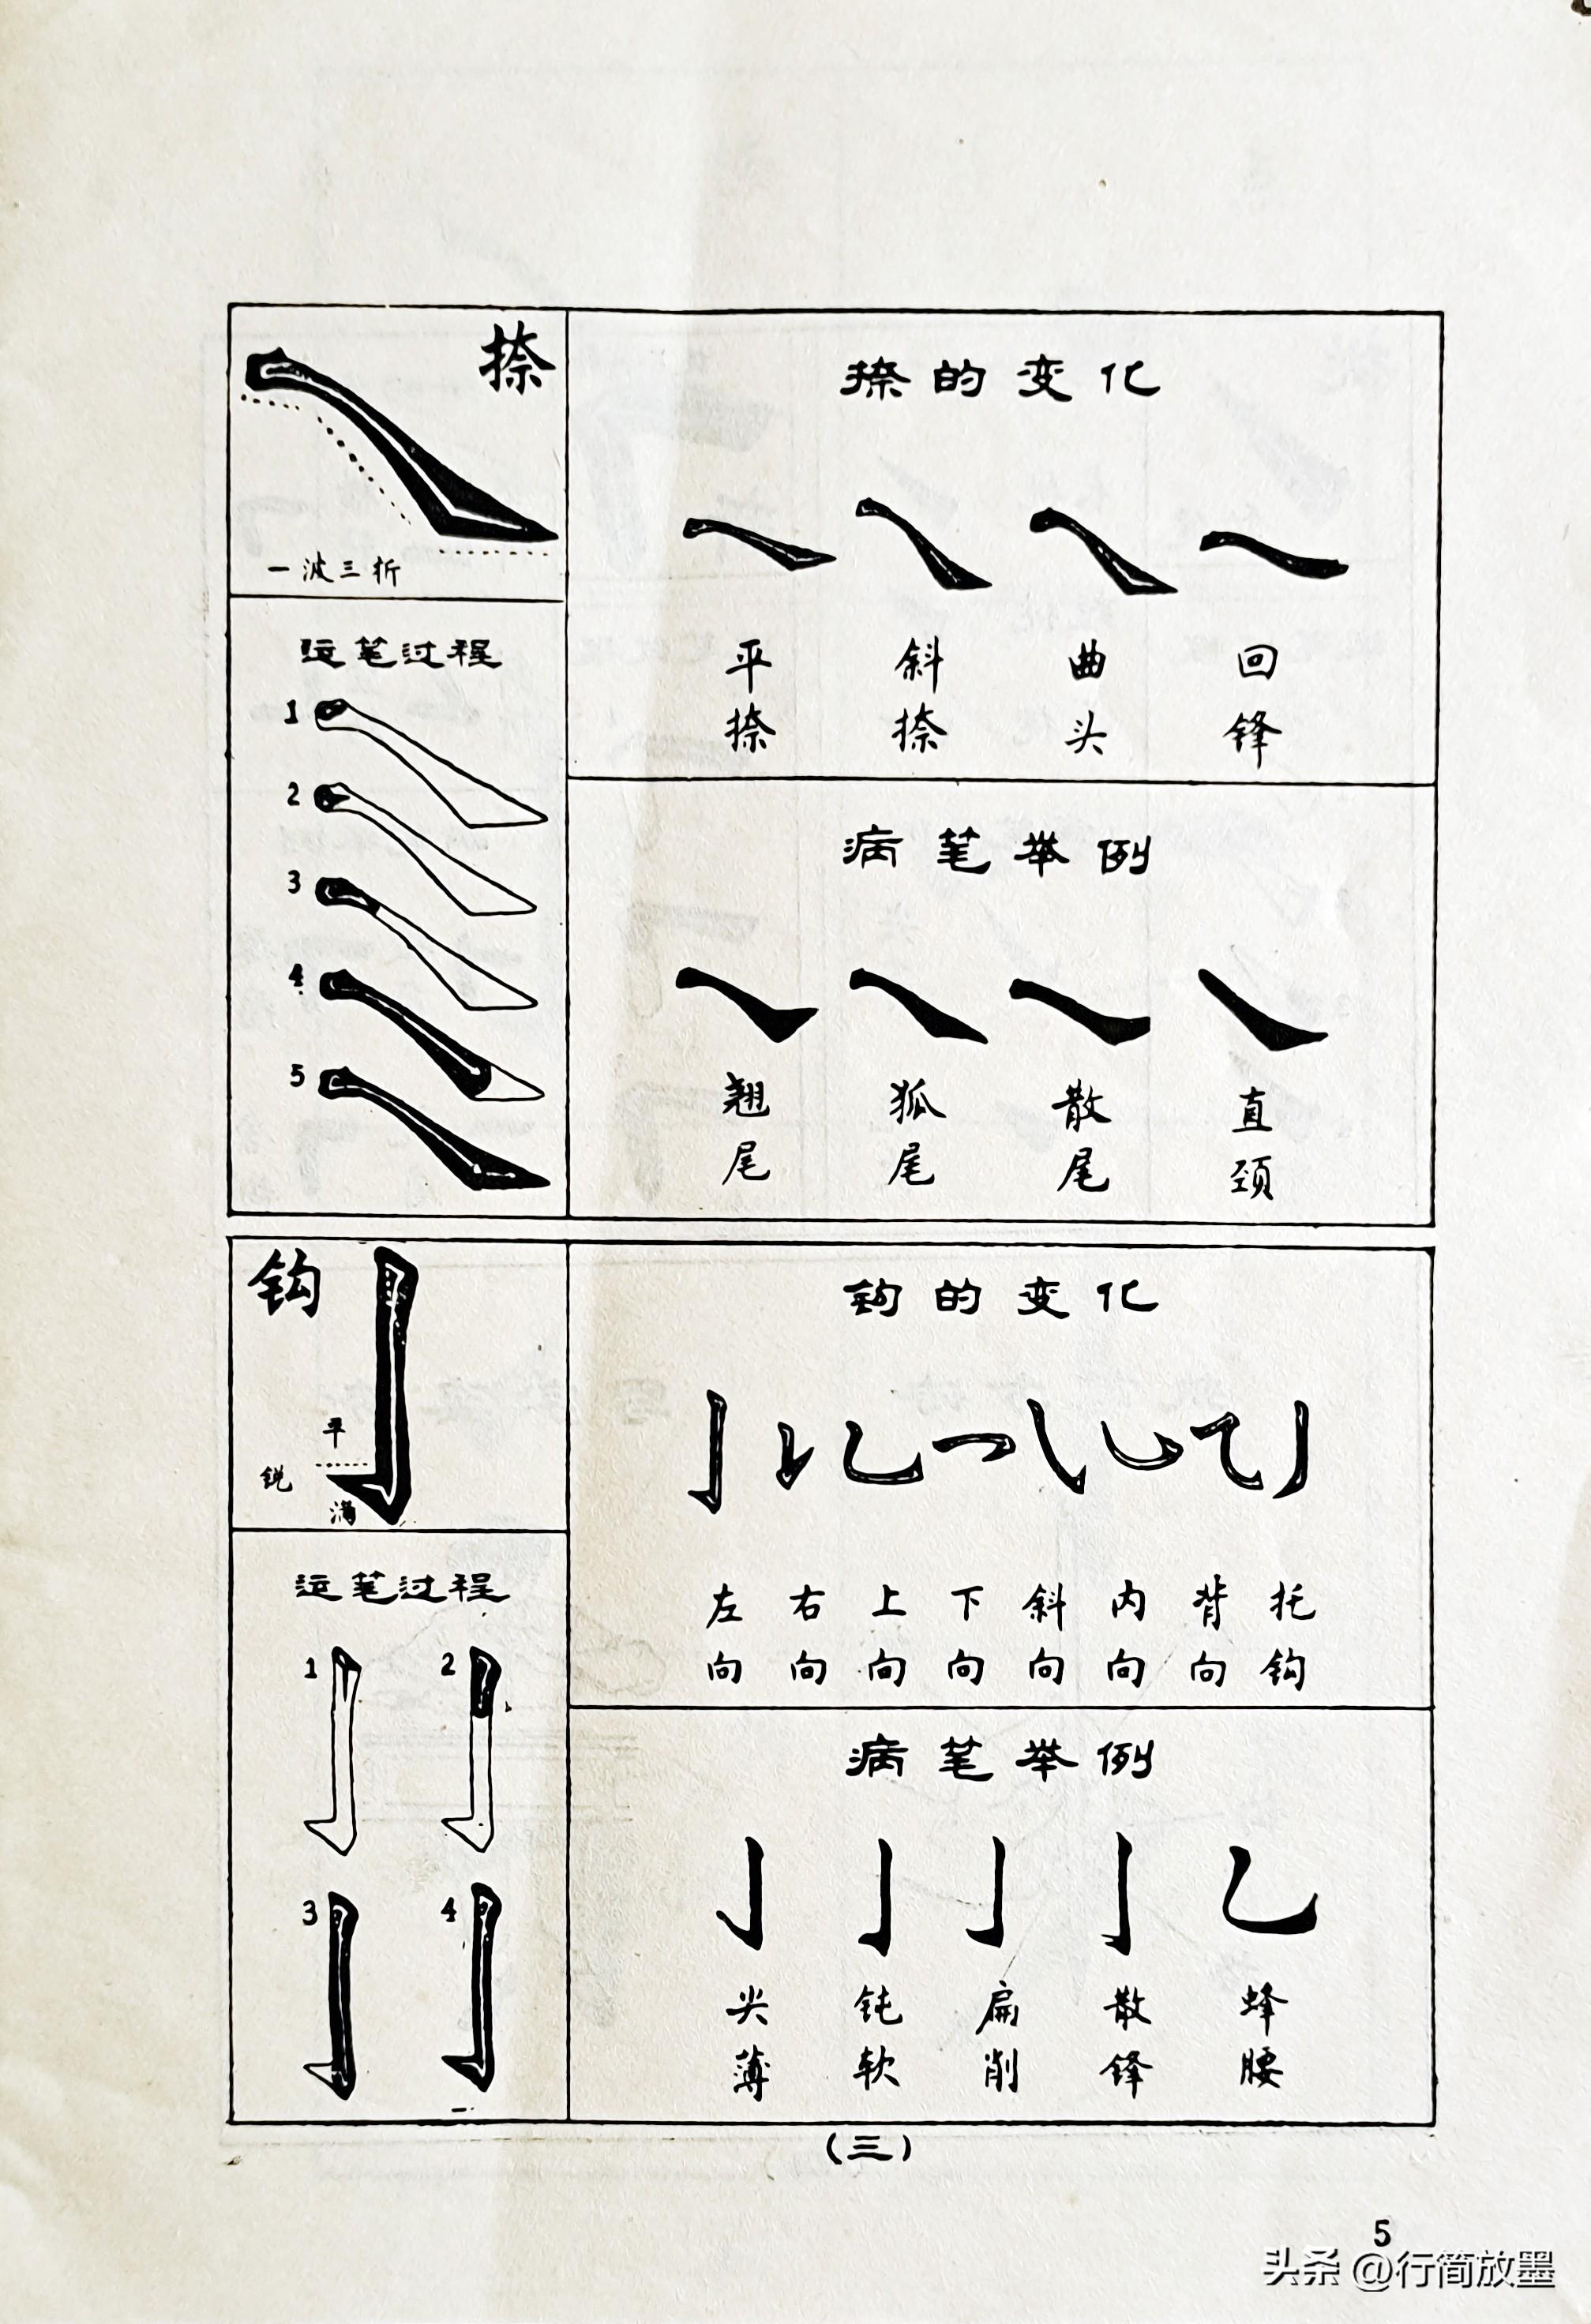 捺
一波三折
运笔过程
1
2
3
4
5
捺的变化
平捺
斜捺
曲头
回锋
病笔举例
翘尾
狐尾
散尾
直颈
钩
平
锐
满
运笔过程
1
2
3
4
钩的变化
左向
右向
上向
下向
斜向
内向
背向
托钩
病笔举例
尖薄
钝软
扁削
散锋
蜂腰
(三)
5
头条 @行简放墨